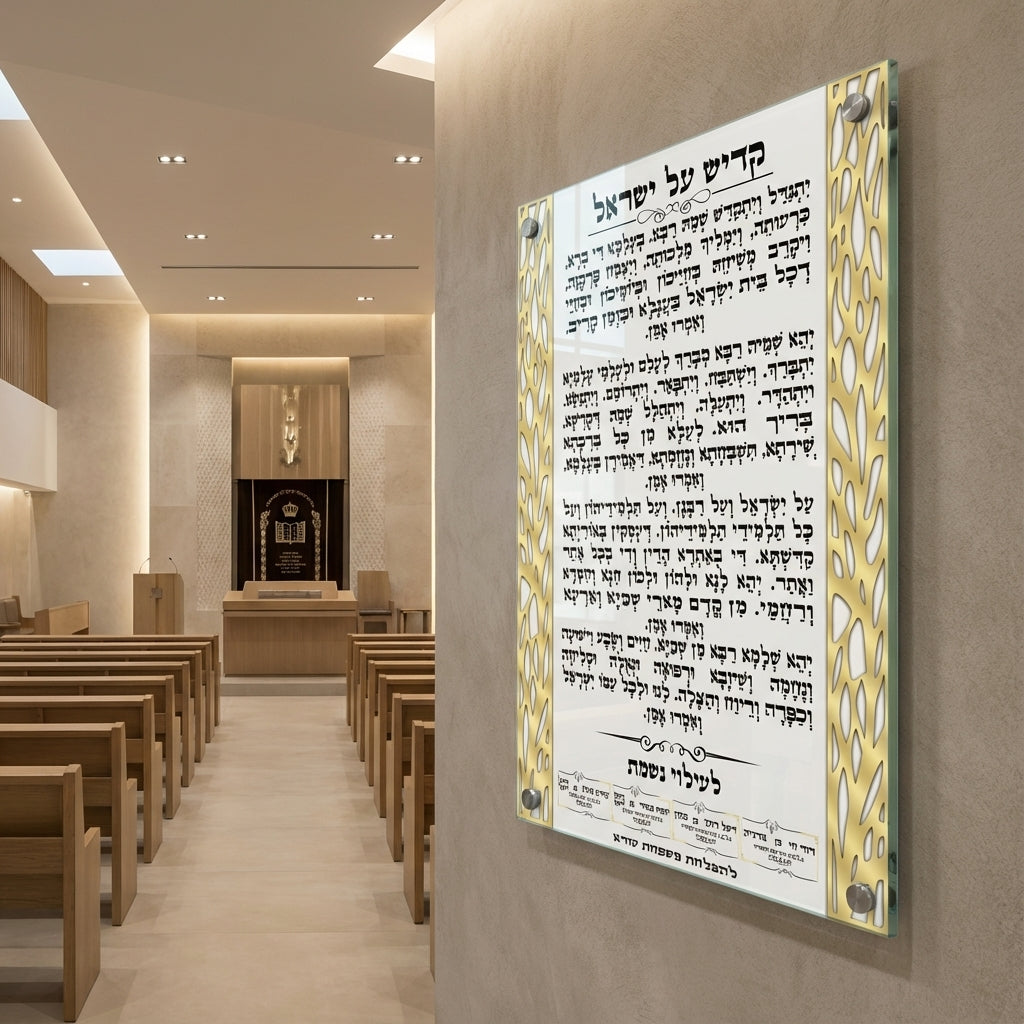 קדיש על ישראל
יִתְגַּדַּל וְיִתְקַדַּשׁ שְׁמֵהּ רַבָּא. בְּעָלְמָא דִי בְרָא,
כִּרְעוּתֵהּ, וְיַמְלִיךְ מַלְכוּתֵהּ, וְיַצְמַח פֻּרְקָנֵהּ,
וִיקָרֵב מְשִׁיחֵהּ בְּחַיֵּיכוֹן וּבְיוֹמֵיכוֹן וּבְחַיֵּי
דְכָל בֵּית יִשְׂרָאֵל בַּעֲגָלָא וּבִזְמַן קָרִיב,
וְאִמְרוּ אָמֵן.
יְהֵא שְׁמֵיהּ רַבָּא מְבָרַךְ לְעָלַם וּלְעָלְמֵי עָלְמַיָּא
יִתְבָּרַךְ. וְיִשְׁתַּבַּח. וְיִתְפָּאַר. וְיִתְרוֹמַם. וְיִתְנַשֵּׂא.
וְיִתְהַדָּר. וְיִתְעַלֶּה. וְיִתְהַלָּל שְׁמֵהּ דְּקֻדְשָׁא,
בְּרִיךְ הוּא. לְעֵלָּא מִן כָּל בִּרְכָתָא
שִׁירָתָא, תִּשְׁבְּחָתָא וְנֶחֱמָתָא, דַּאֲמִירָן בְּעָלְמָא,
וְאִמְרוּ אָמֵן.
עַל יִשְׂרָאֵל וְעַל רַבָּנָן. וְעַל תַּלְמִידֵיהוֹן וְעַל
כָּל תַּלְמִידֵי תַלְמִידֵיהוֹן. דְּעָסְקִין בְּאוֹרַיְתָא
קַדִּשְׁתָּא. דִּי בְאַתְרָא הָדֵין וְדִי בְכָל אֲתַר
וַאֲתַר. יְהֵא לָנָא וּלְהוֹן וּלְכוֹן חִנָּא וְחִסְדָּא
וְרַחֲמֵי. מִן קֳדָם מָארֵי שְׁמַיָּא וְאַרְעָא
וְאִמְרוּ אָמֵן.
יְהֵא שְׁלָמָא רַבָּא מִן שְׁמַיָּא. חַיִּים וְשָׂבָע וִישׁוּעָה
וְנֶחָמָה וְשֵׁיזָבָא וּרְפוּאָה וּגְאֻלָּה וּסְלִיחָה
וְכַפָּרָה וְרֵיוַח וְהַצָּלָה. לָנוּ וּלְכָל עַמּוֹ יִשְׂרָאֵל
וְאִמְרוּ אָמֵן.
לעילוי נשמת
להצלחת משפחת